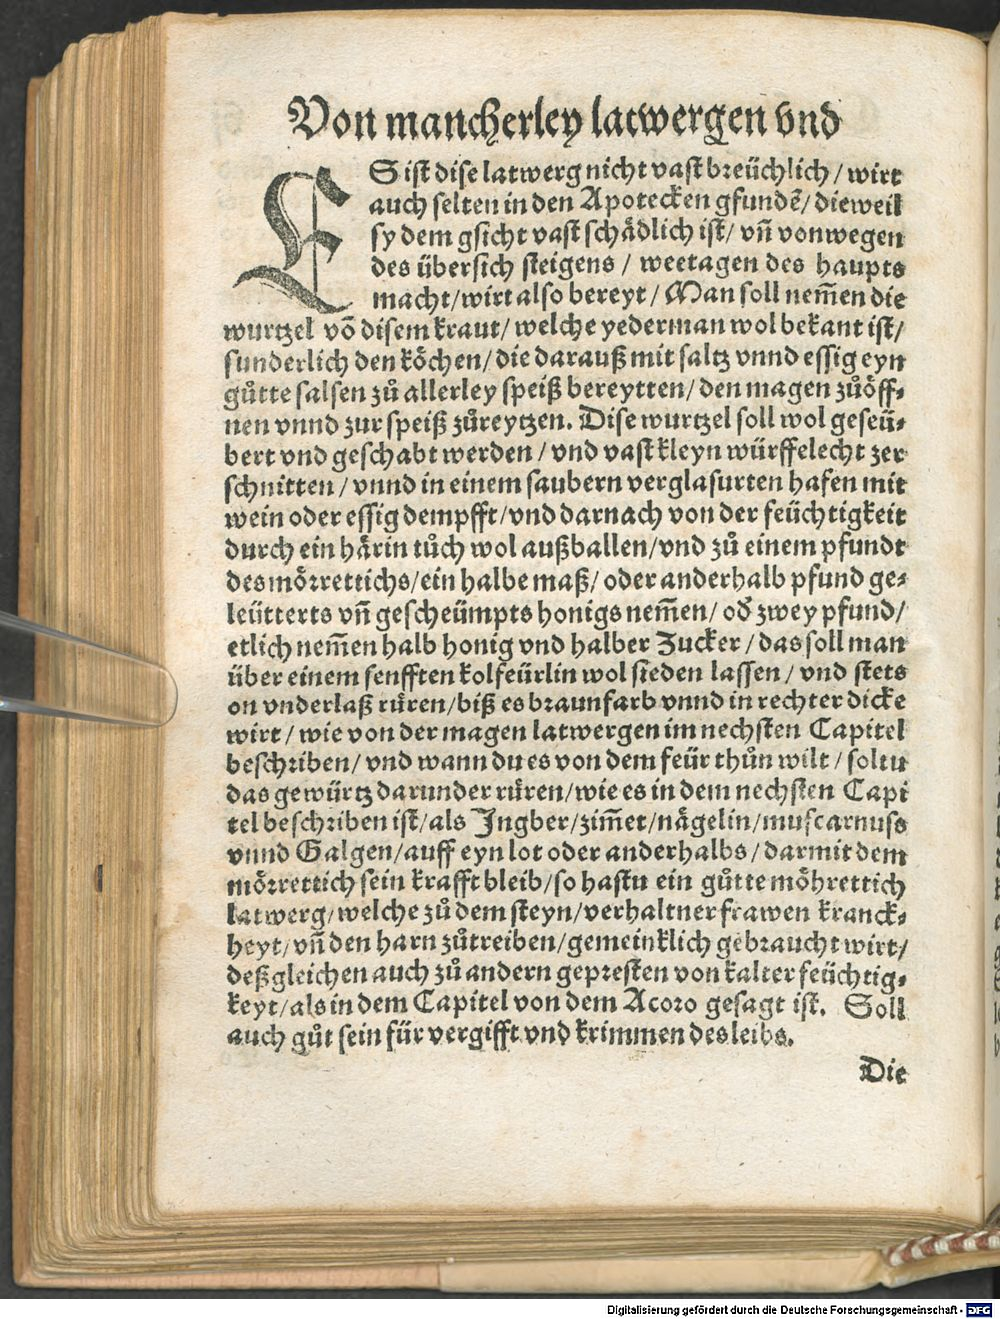 Von mancherley latwergen vnd
ES ist dise latwerg nicht vast breüchlich/ wirt
auch selten in den Apotecken gfundē/ dieweil
sy dem gsicht vast schädlich ist/ vñ vonwegen
des übersich steigens / weetagen des haupts
macht/ wirt also bereyt / Man soll nem̄en die
wurtzel võ disem kraut/ welche yederman wol bekant ist/
sunderlich den köchen/ die darauß mit saltz vnnd essig eyn
gůtte salsen zů allerley speiß bereytten/ den magen zůöff⸗
nen vnnd zur speiß zůreytzen. Dise wurtzel soll wol geseü⸗
bert vnd geschabt werden / vnd vast kleyn würffelecht zer
schnitten / vnnd in einem saubern verglasurten hafen mit
wein oder essig dempfft/ vnd darnach von der feüchtigkeit
durch ein härin tůch wol außballen/ vnd zů einem pfundt
des mörrettichs/ ein halbe maß/ oder anderhalb pfund ge⸗
leütterts vñ gescheümpts honigs nem̄en/ od̄ zwey pfund/
etlich nem̄en halb honig vnd halber Zucker / das soll man
über einem senfften kolfeürlin wol sieden lassen / vnd stets
on vnderlaß rüren/ biß es braunfarb vnnd in rechter dicke
wirt / wie von der magen latwergen im nechsten Capitel
beschriben/ vnd wann du es von dem feür thůn wilt / soltu
das gewürtz darunder rüren/ wie es in dem nechsten Capi
tel beschriben ist/ als Ingber/ zim̄et/ nägelin/ muscatnuss
vnnd Galgen/ auff eyn lot oder anderhalbs / darmit dem
mörrettich sein krafft bleib/ so hastu ein gůtte möhrettich
latwerg/ welche zů dem steyn/ verhaltner frawen kranck⸗
heyt/ vñ den harn zůtreiben/ gemeinklich gebraucht wirt/
deßgleichen auch zů andern gepresten von kalter feüchtig⸗
keyt/ als in dem Capitel von dem Acoro gesagt ist. Soll
auch gůt sein für vergifft vnd krimmen des leibs.
Die
Digitalisierung gefördert durch die Deutsche Forschungsgemeinschaft - DFG